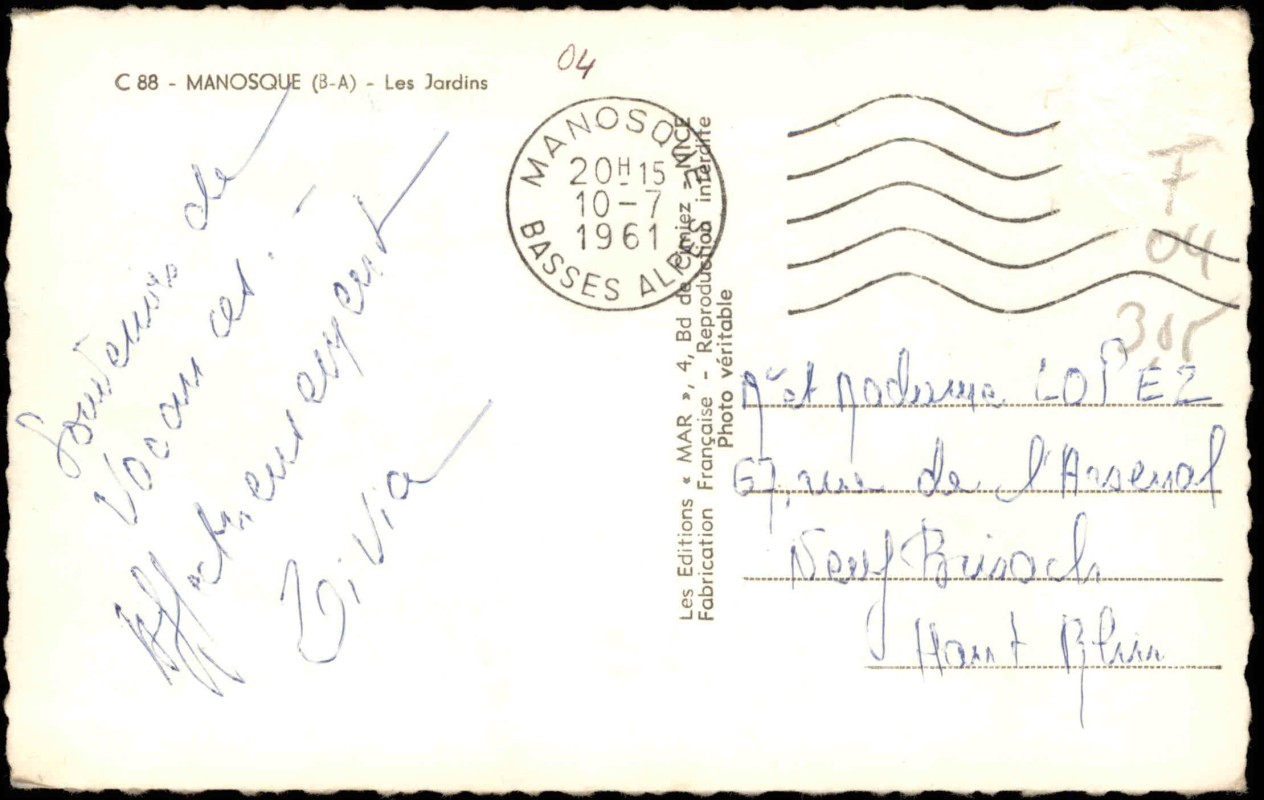 C 88 - MANOSQUE (B-A) - Les Jardins
04
MANOSQUE
20H15
10-7
1961
BASSES ALPES
Souvenirs de
Vacances. -
Affectueusement
Les Editions « MAR », 4, Bd de Cimiez - NICE
Fabrication Française - Reproduction interdite
Photo véritable
F
04
Mr et Madame LOPEZ
67, rue de l'Arsenal
Neuf Brisach
Haut Rhin